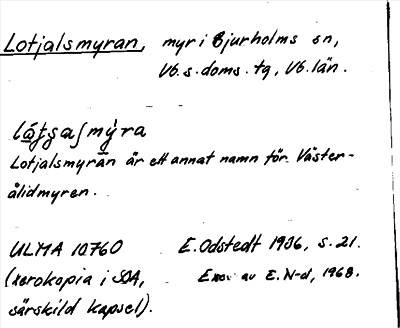 Lotjalsmyran, myr i Bjurholms sn,
Vb.s.doms.tg, Vb.län.
låtjsaʃmýra
Lotjalsmyran är ett annat namn för Väster-
ålidmyren.
ULMA 10760 E.Odstedt 1936, s.21.
(xerokopia i SOA, Exc. av E.N-d, 1968.
särskild kapsel).